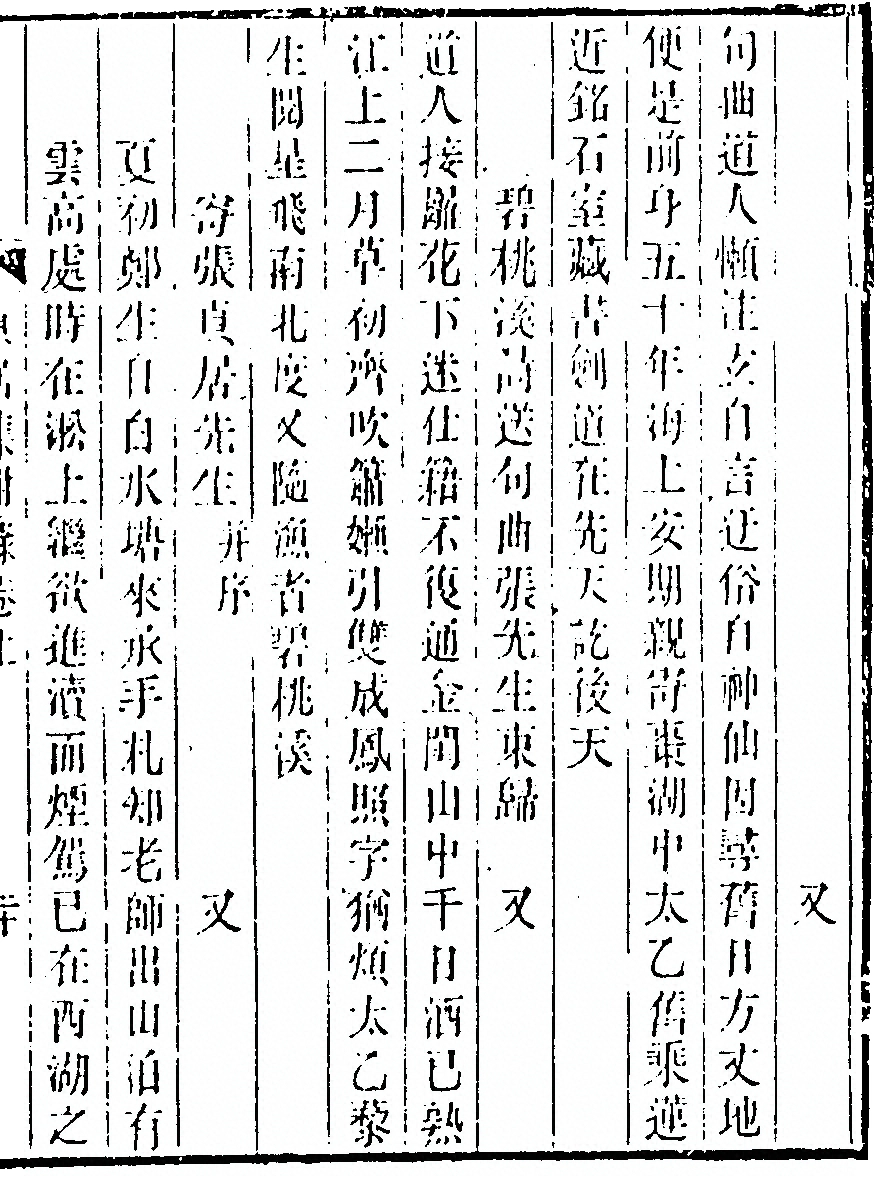 又
句曲道人懶注玄自言迂俗自神仙因尋舊日方丈地
便是前身五十年海上安期親寄棗湖中太乙舊乘蓮
近銘石室藏書劍道在先天訖後天
碧桃溪詩送句曲張先生東歸 又
道人接䍦花下迷仕籍不復通金閨山中千日酒已熟
江上二月草初齊吹簫嬾引雙成鳳照字猶煩太乙藜
生閱星飛南北度又隨漁者碧桃溪
寄張貞居先生并序 又
夏初鄭生自白水塘來承手札知老師出山泊有
雲高處時在淞上繼欲進瀆而煙駕已在西湖之